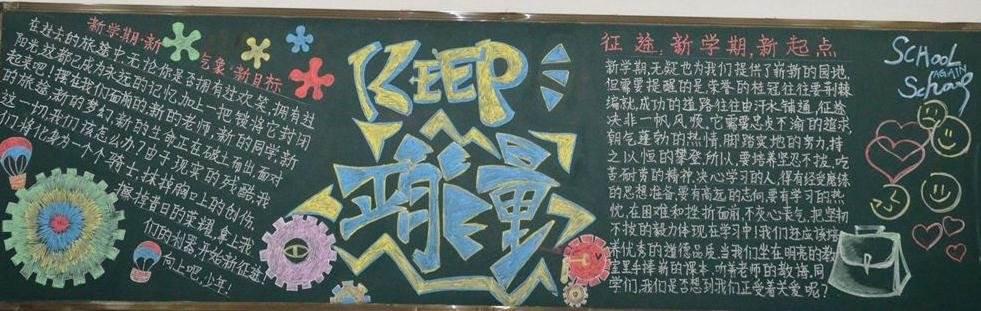 新学期·新气象·新目标
在过去的旅途中,无论你是否拥有过欢笑,拥有过
阳光,这都已成为永远的记忆,加上一把锁将它封闭
起来吧!摆在我们面前的新的老师,新的同学,新
的旅途,新的梦幻,新的生命正在破土而出,面对
这一切,我们该怎么办?由于现实的残酷,我
们将化身为一个个骑士,抹掉胸口上的创伤,
擦掉昔日的荣耀,拿上我
们的利器,开始新征途!
向上吧,少年!
KEEP
正能量
征途,新学期,新起点
新学期,无疑也为我们提供了崭新的园地,
但需要提醒的是荣誉的桂冠往往要荆棘
编就,成功的道路往往由汗水铺通,征途
决非一帆风顺,它需要忠贞不渝的追求,
朝气蓬勃的热情,脚踏实地的努力,持
之以恒的攀登,所以,要培养坚忍不拔,吃
苦耐劳的精神,决心学习的人,得有经受磨练
的思想准备,要有高远的志向,要有学习的热
忱,在困难和挫折面前,不灰心丧气,把坚韧
不拔的毅力体现在学习中!我们还应该培
养优秀的道德品质,当我们坐在明亮的教
室里手捧新的课本,听着老师的教诲,同
学们,我们是否想到我们正受着关爱呢?
SCHOOL
AGAIN
School